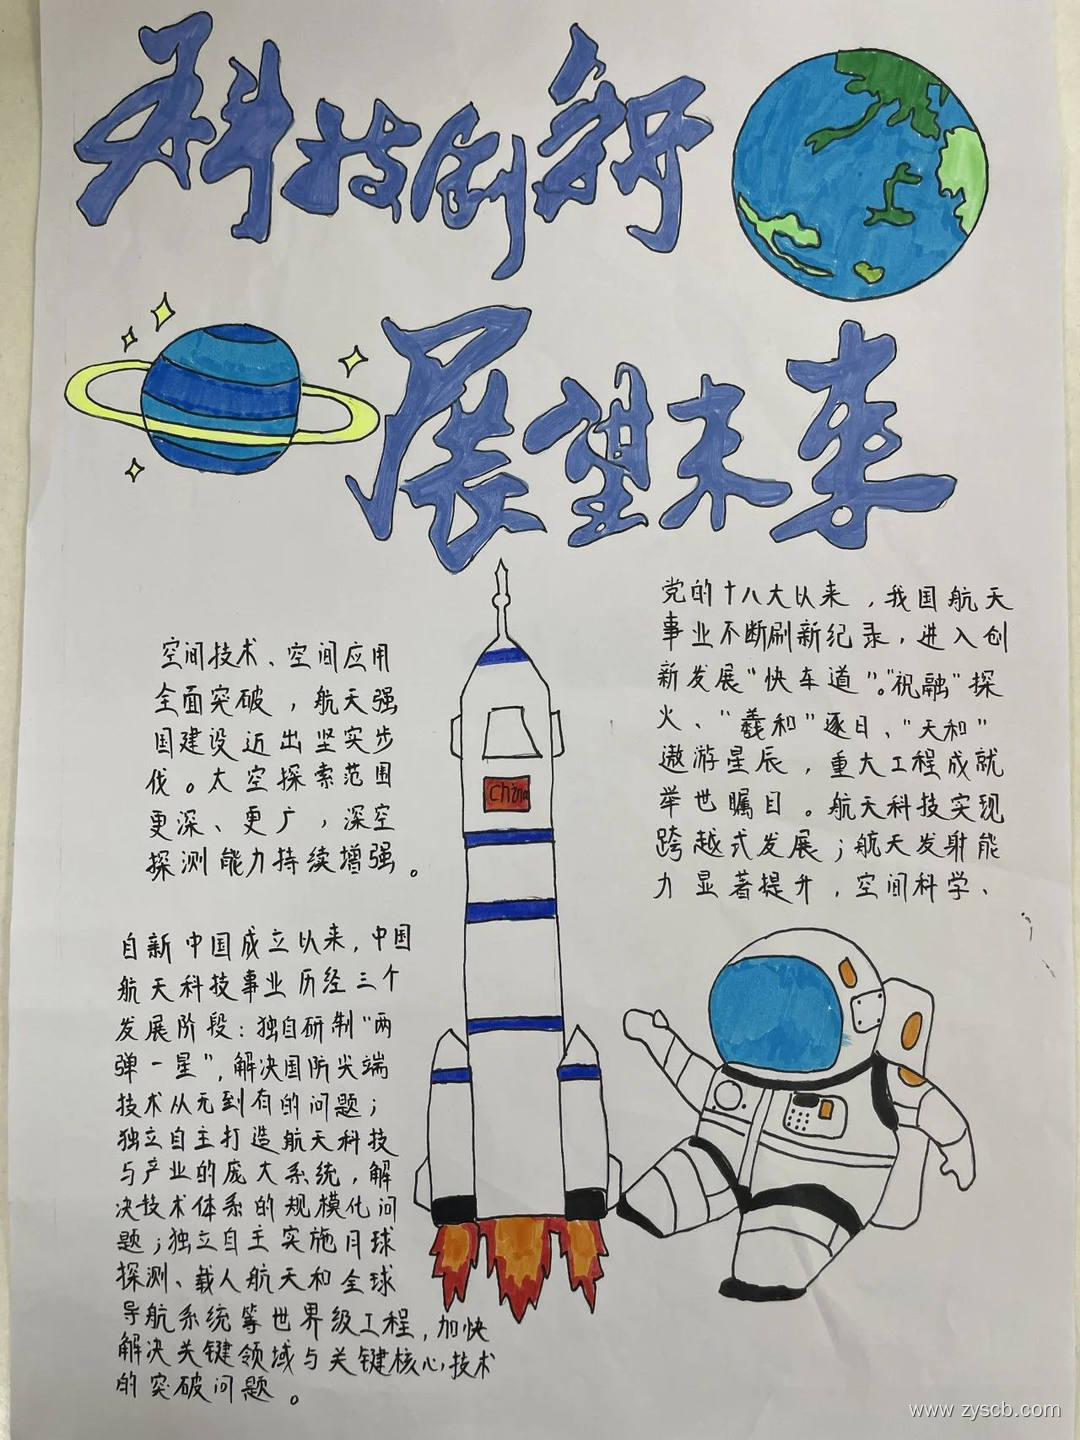 科技创新
展望未来
党的十八大以来，我国航天
事业不断刷新纪录，进入创
新发展“快车道”。“祝融”探
火、“羲和”逐日、“天和”
遨游星辰，重大工程成就
举世瞩目。航天科技实现
跨越式发展；航天发射能
力显著提升，空间科学、
空间技术、空间应用
全面突破，航天强
国建设迈出坚实步
伐。太空探索范围
更深、更广，深空
探测能力持续增强。
China
自新中国成立以来，中国
航天科技事业历经三个
发展阶段：独自研制“两
弹一星”，解决国防尖端
技术从无到有的问题；
独立自主打造航天科技
与产业的庞大系统，解
决技术体系的规模化问
题；独立自主实施月球
探测、载人航天和全球
导航系统等世界级工程，加快
解决关键领域与关键核心技术
的突破问题。
www.zyscb.com